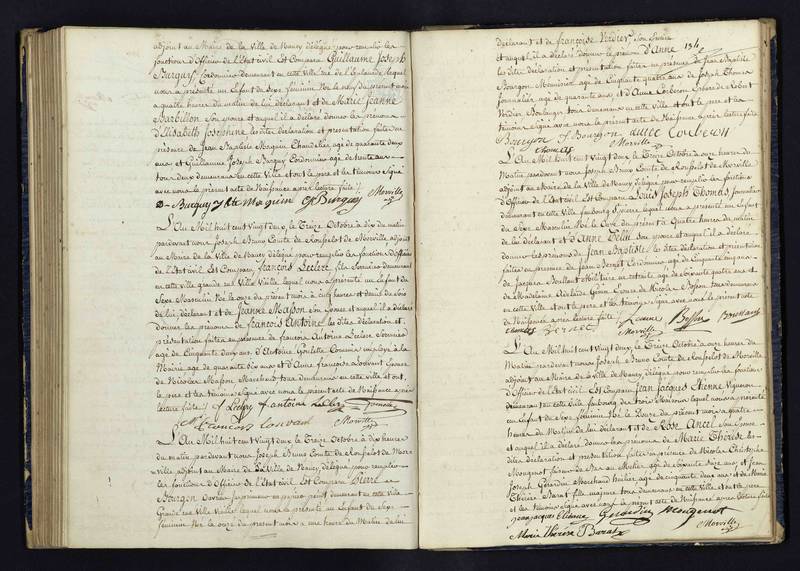 adjoint au Maire de la Ville de Nancy délégué pour remplir les
fonctions d'Officier de l'Etat civil Est Comparu Guillaume Joseph
Burguy, Cordonnier demeurant en cette Ville rue de l'Esplanade, lequel
nous a présenté un Enfant du Sexe féminin Né le neuf du présent mois
a quatre heures du matin de lui déclarant et de Marie Jeanne
Barbillon Son Epouse et auquel il a déclaré donner les prénoms
d'Elisabeth Josephine les dites déclaration et présentation faites en
présence de Jean Baptiste Maguin Chandelier agé de quarante deux
ans et Guillaume Joseph Burguy Cordonnier agé de trente
tous deux demeurans en cette Ville et ont le père et les témoins Signé
avec nous le présent acte de Naissance après lecture faite /.
Burguy J Bte Maguin GJ Burguy Morville
L'An Mil huit cent Vingt deux le Treize Octobre à dix du matin
pardevant nous Joseph Bruno Comte de Rousselot de Morville, adjoint
au Maire de la Ville de Nancy délégué pour remplir les fonctions d'Officier
de l'Etat civil Est Comparu, françois Leclerc, demeurant
en cette ville grande rue Ville Vieille lequel nous a présenté un Enfant du
Sexe Masculin Né le onze du présent mois à cinq heures et demie du soir
de lui déclarant et de Jeanne Masson Son Epouse et auquel il a déclaré
donner les prénoms de françois Antoine, les dites déclaration et
présentation faites en présence de francois Antoine Leclerc
agé de Cinquante deux ans d'Antoine Goulette Commis employé à la
Mairie agé de quarante Six ans et d'Anne françoise Louvant Epouse
de Nicolas Masson Marchand tous demeurans en cette Ville et ont,
le père et les témoins Signé avec nous le présent acte de Naissance après
lecture faite /. f Leclerc f antoine Leclerc
francois Louvant Morville
L'An Mil huit cent Vingt deux le Treize Octobre à dix heures
du matin, pardevant nous Joseph Bruno Comte de Rousselot de Mor
ville adjoint au Maire de la Ville de Nancy délégué pour remplir
les fonctions d'Officier de l'Etat civil Est Comparu Pierre
Bourgon Ouvrier en papier peint demeurant en cette Ville
Grande rue Ville Vieille lequel nous a présenté un Enfant du Sexe
féminin Né le onze du présent mois à une heure du Matin de lui
déclarant et de françoise Verdier Son Epouse
et auquel il a déclaré donner le prénom d'Anne 184
les dites déclaration et présentation faites en présence de Jean Baptiste
Bourgon Menuisier agé de Cinquante quatre ans de Joseph Thomas
journalier agé de quarante ans et d'Anne Corberon Epouse de Robert
Verdier Boulanger tous demeurans en cette Ville et ont le père et les
témoins Signé avec nous le présent acte de Naissance après lecture faite
Bourgon J Bourgon anne Corberon
Thomas Morville
L'An Mil huit cent Vingt deux le Treize Octobre à onze heures du
Matin pardevant nous Joseph Bruno Comte de Rousselot de Morville
adjoint au Maire de la Ville de Nancy délégué pour remplir les fonctions
d'Officier de l'Etat civil Est Comparu Louis Joseph Thomas, journalier
demeurant en cette Ville, faubourg St Pierre lequel nous a présenté un Enfant
du Sexe Masculin Né le onze du présent à Quatre heures du matin
de lui déclarant et d'Anne Son Epouse et auquel il a déclaré
donner les prénoms de Jean Baptiste, les dites déclaration et présentation
faites en présence de Jean Bernet Cordonnier agé de Cinquante cinq ans
de Jacques Brullant Militaire en retraite agé de Soixante quatre ans et
de Madelaine Adelaïde Epouse de Nicolas tous demeurans
en cette Ville et ont le père et les témoins Signé avec nous le présent acte
de Naissance après lecture faite /.
Thomas Bernet Morville
L'An Mil huit cent Vingt deux, le Treize Octobre à onze heures du
Matin pardevant nous Joseph Bruno Comte de Rousselot de Morville
adjoint au Maire de la Ville de Nancy délégué pour remplir les fonctions
d'Officier de l'Etat civil Est Comparu Jean Jacques Etienne Vigneron
demeurant en cette Ville faubourg des trois Maisons lequel nous a présenté
un Enfant du Sexe féminin Né le Douze du présent mois à quatre
heures du Matin de lui déclarant et de Rose Ancel Son Epouse
et auquel il a déclaré donner les prénoms de Marie Thérèse les
dites déclaration et présentation faites en présence de Nicolas Christophe
Mougenot agé de Soixante ans et Jean
Joseph Gérardin Marchand agé de cinquante deux ans et de Marie
Thérèse Barat fille majeure tous demeurans en cette Ville et ont le père
et les témoins Signé avec nous le présent acte de Naissance après lecture faite
Jean jacques Etienne Gerardin Mougenot
Marie thérèse Barat Morville